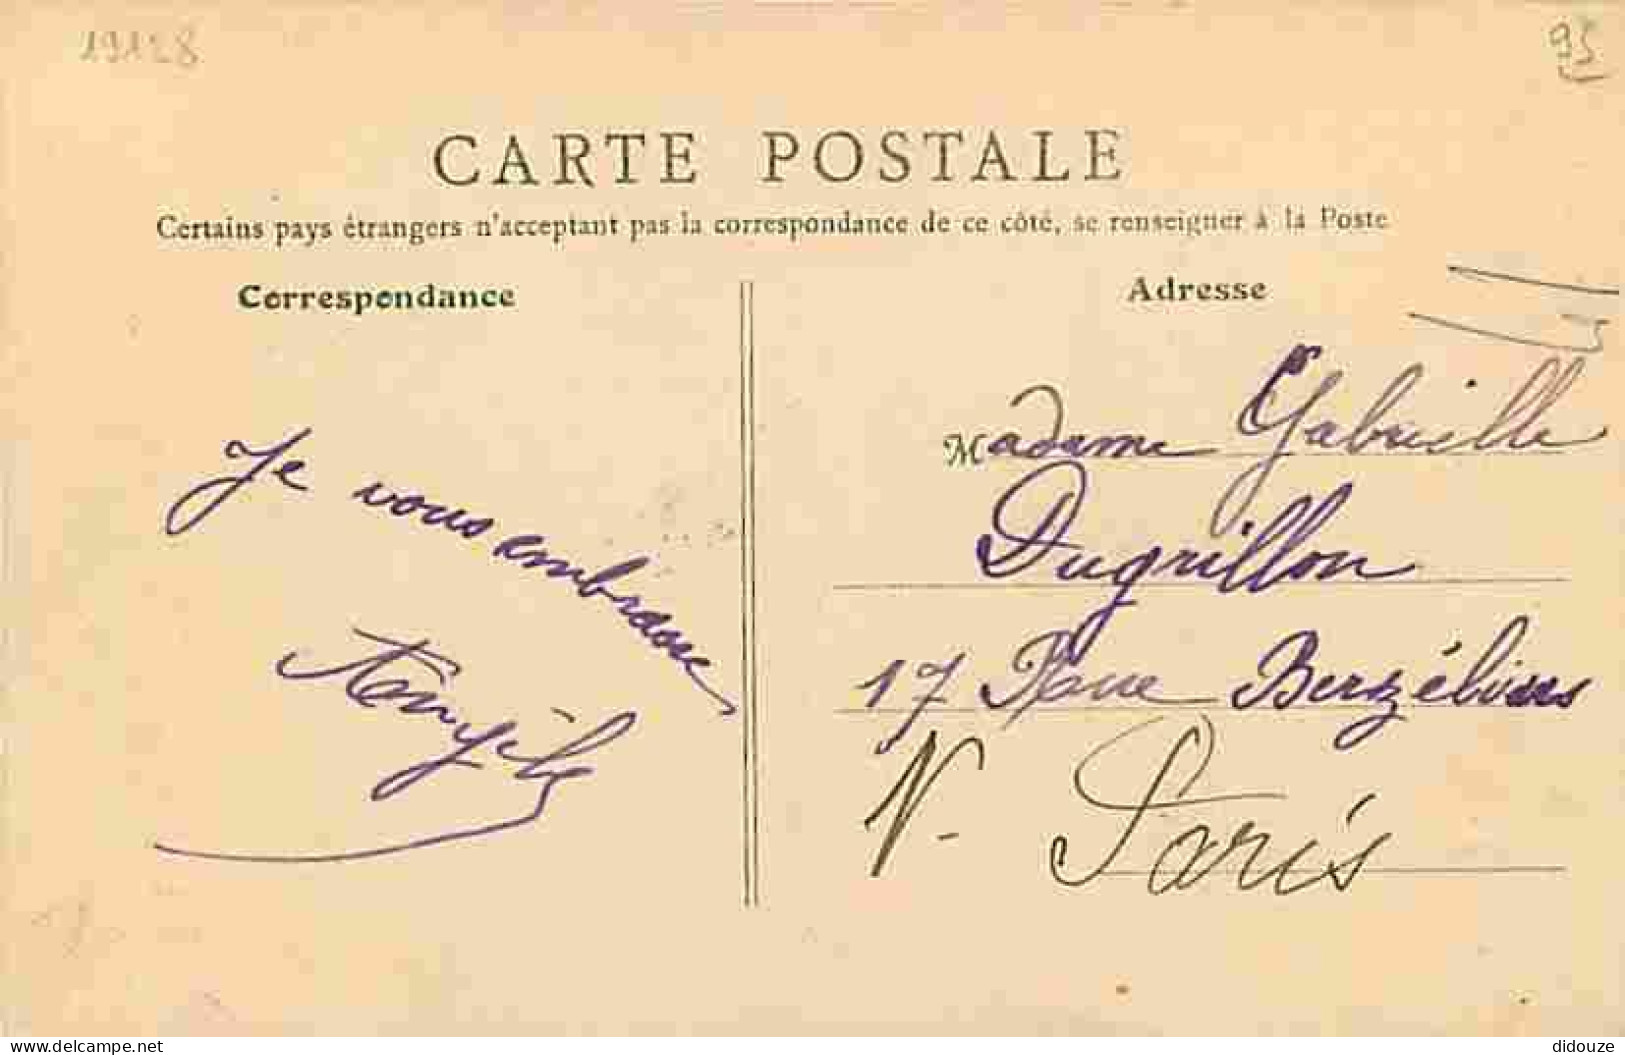 19128
95
CARTE POSTALE
Certains pays étrangers n'acceptant pas la correspondance de ce côté, se renseigner à la Poste
Correspondance
Je vous embrasse
Adresse
Madame Gabrielle
Dugrillon
17 Rue Berzélius
Paris
www.delcampe.net
didouze